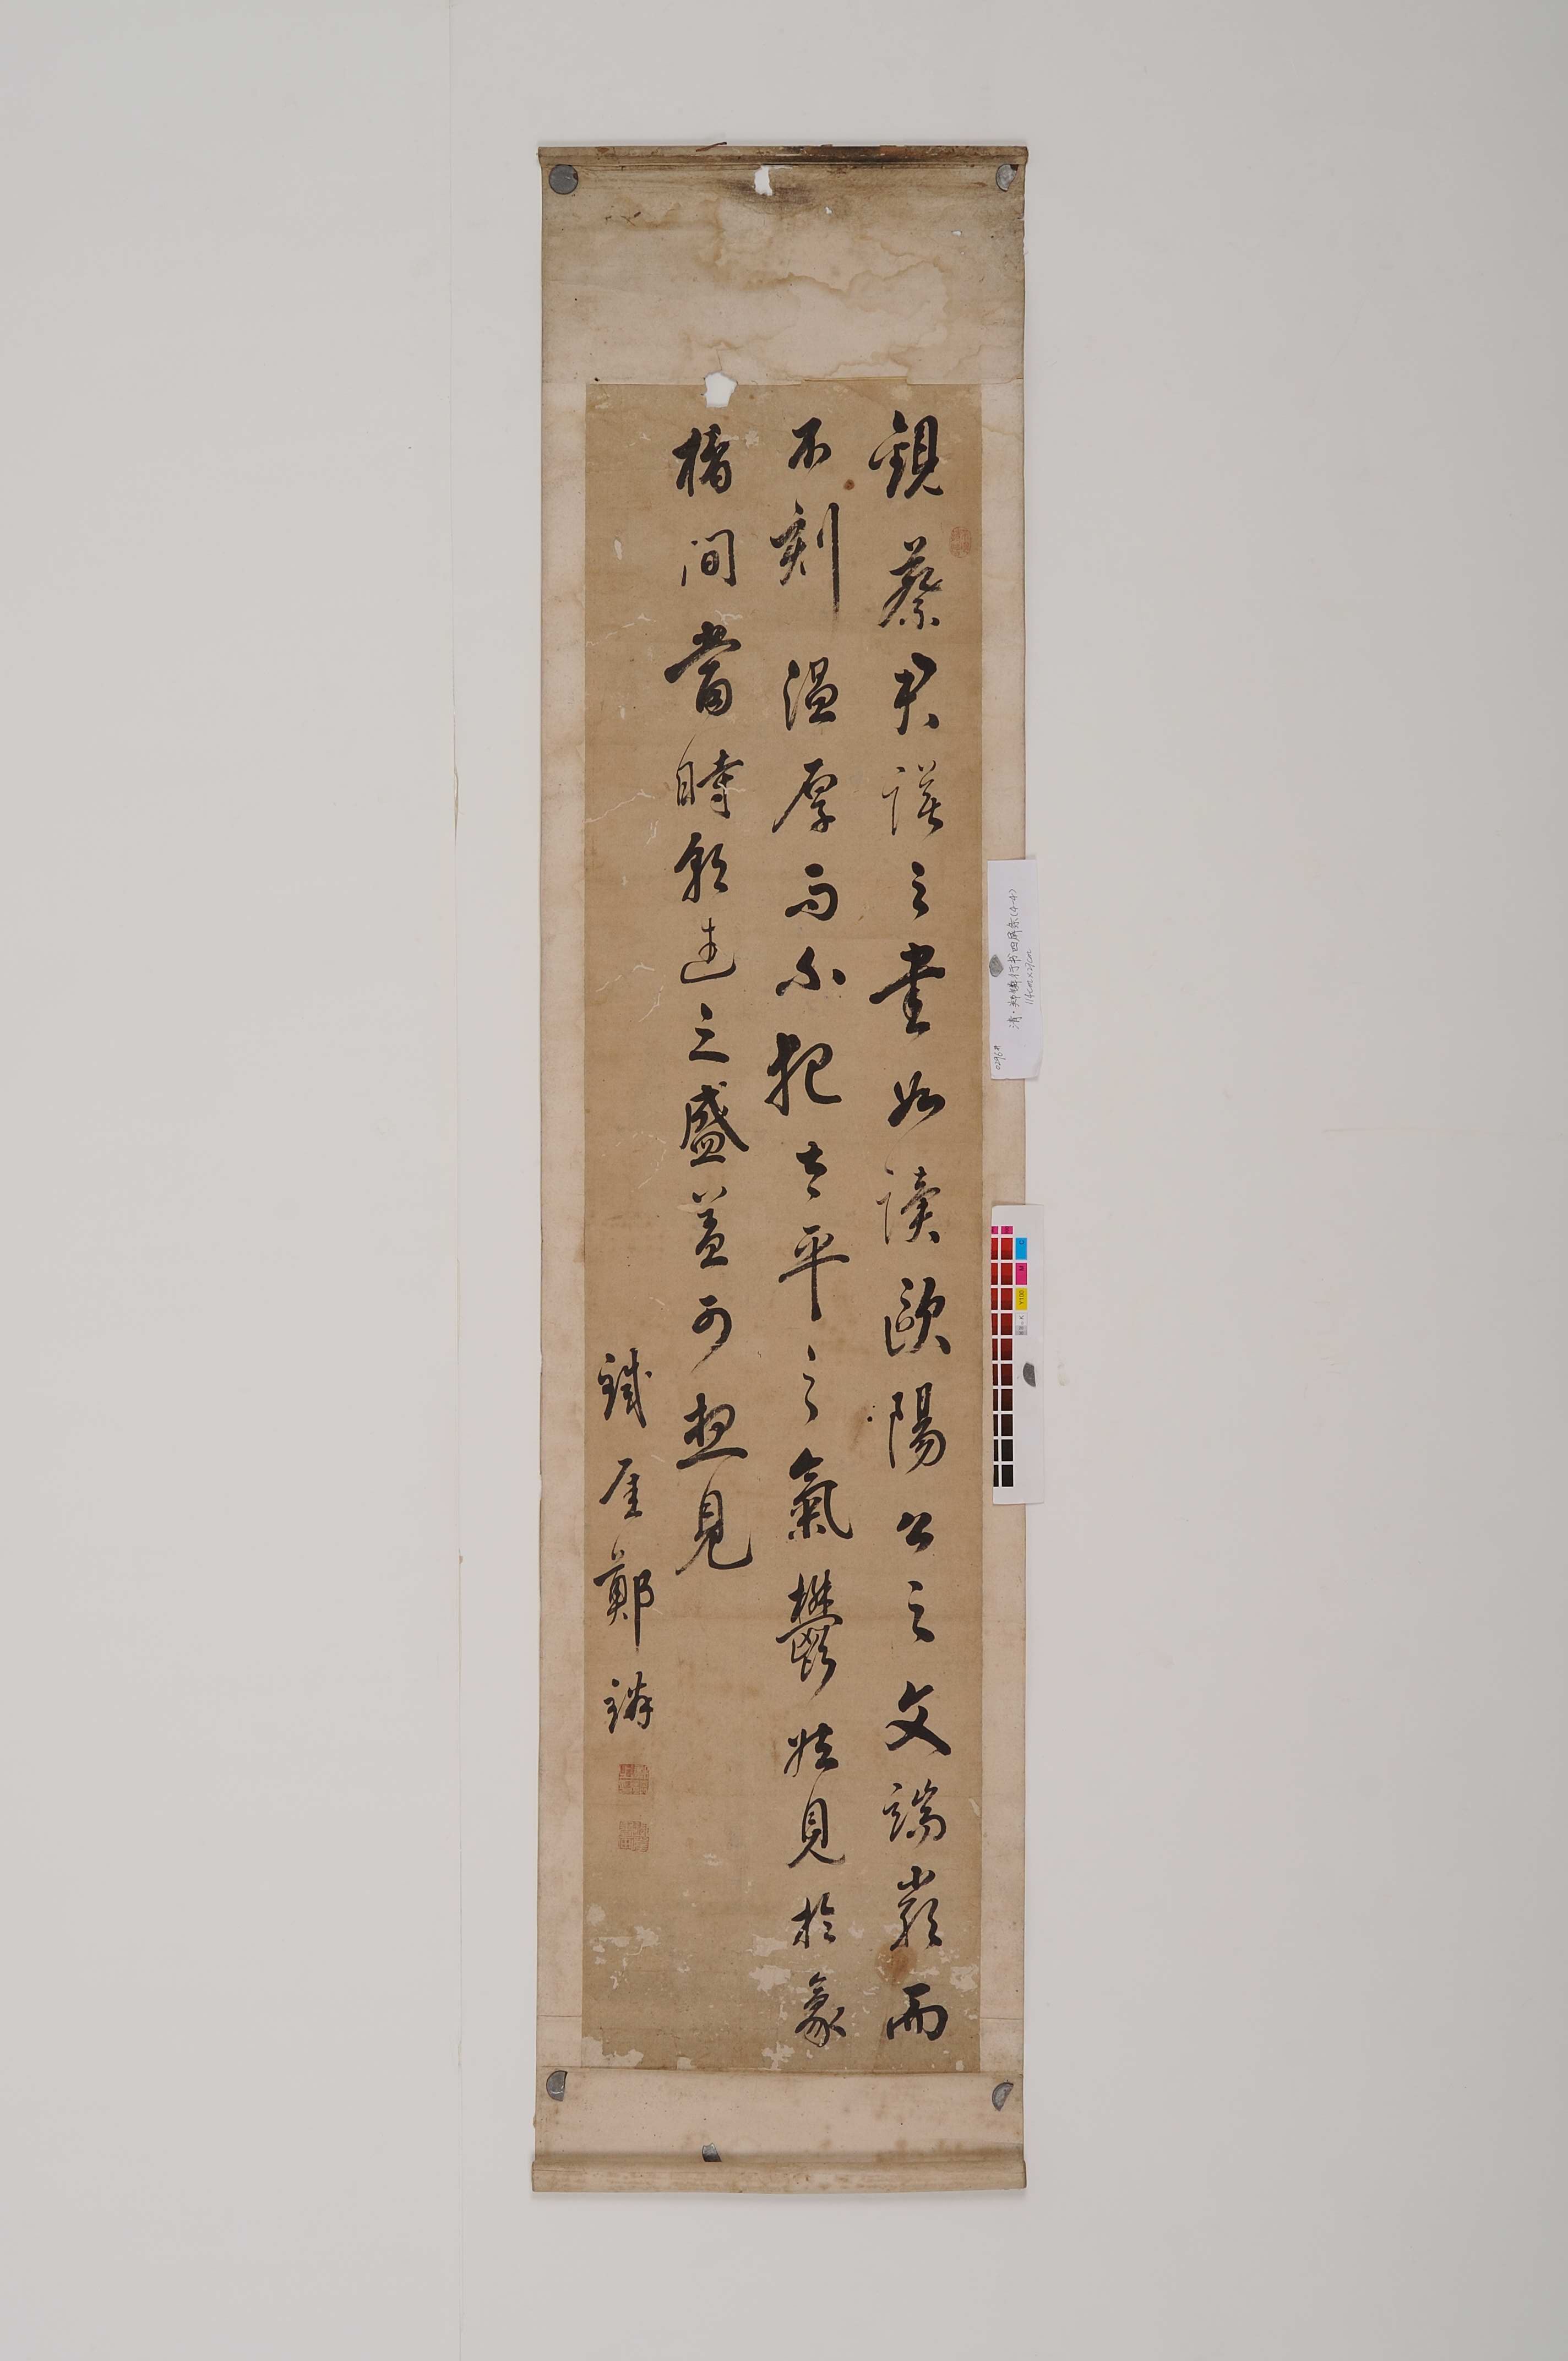 觀蔡君謨之書如讀歐陽公之文端嚴而
不刻溫厚而不犯太平之氣鬱然見於豪
楮間當時朝廷之盛蓋可想見
鐵厓鄭鏻
0296#
清·郑鏻行书四屏条(4-4)
114cm×27cm